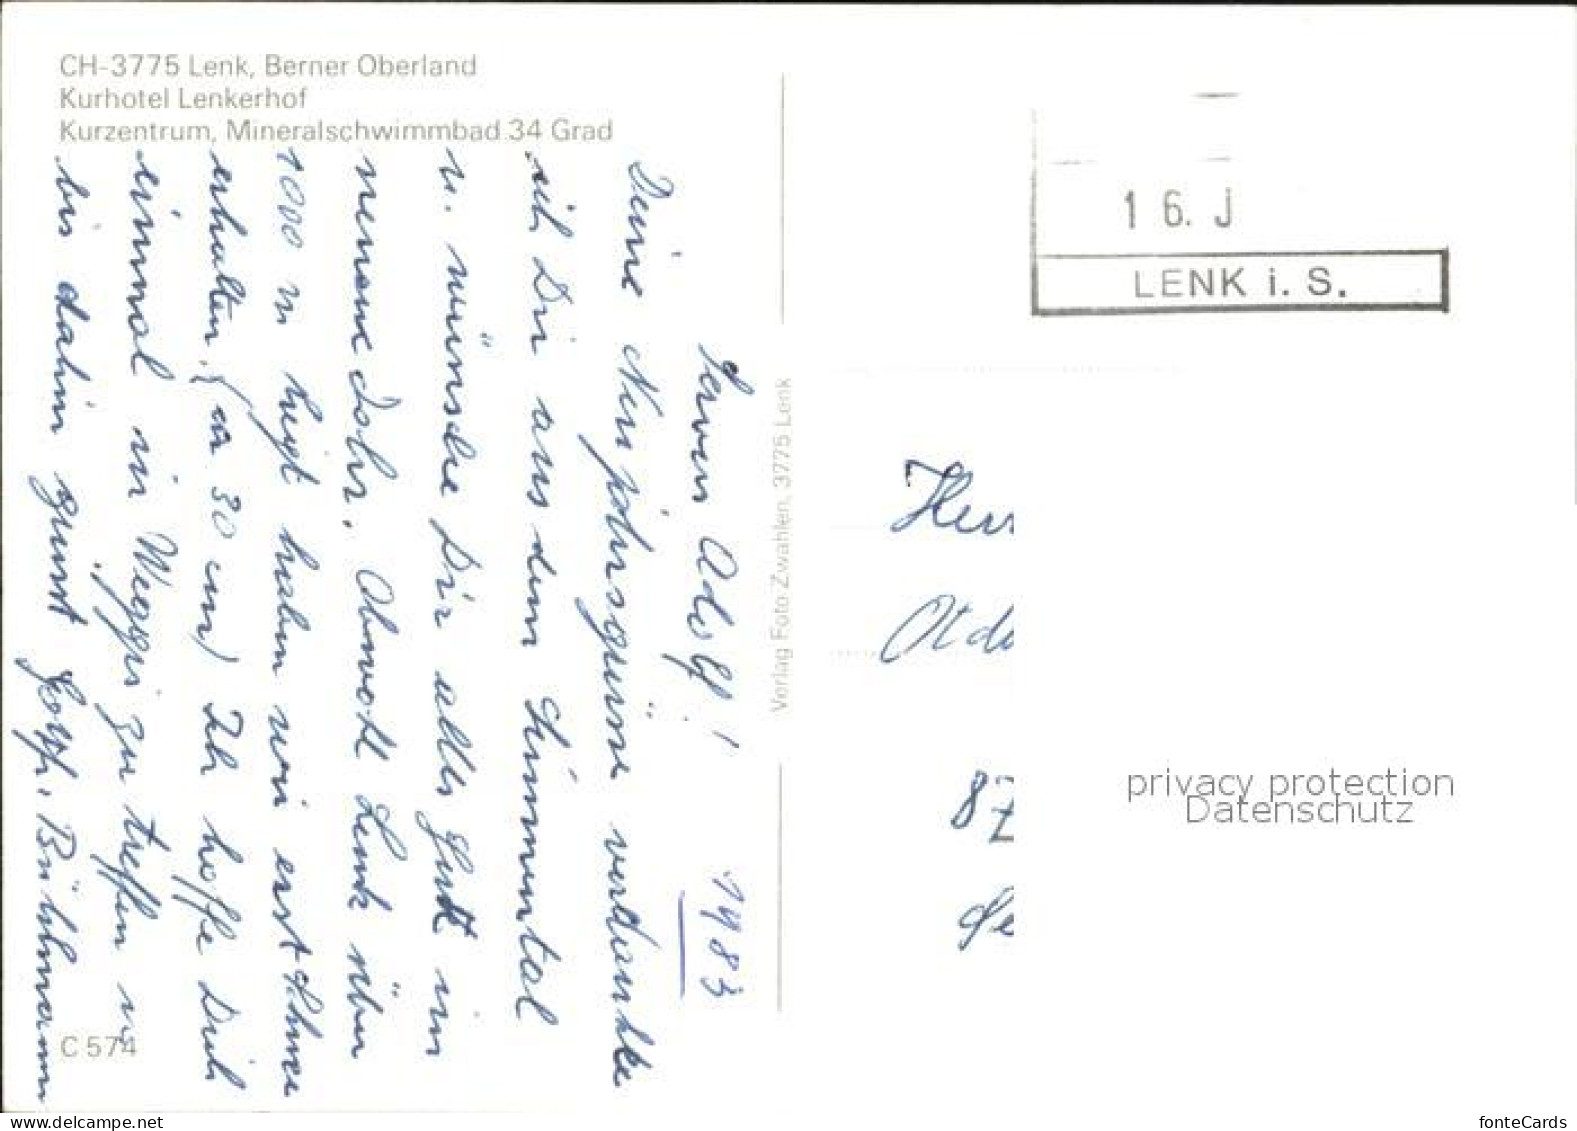 CH-3775 Lenk, Berner Oberland
Kurhotel Lenkerhof
Kurzentrum, Mineralschwimmbad 34 Grad
Adolf! 1983
Deine Neujahrsgrüsse verdanke
ich Dir aus dem Simmental
u. wünsche Dir alles Gute im
neuen Jahr. Obwohl Lenk über
1000 m liegt haben wir erst Schnee
erhalten. (ca 30 cm) Ich hoffe Dich
einmal in Weggis zu treffen u
bis dahin grüsst Bühlmann
C 574
Verlag Foto Zwahlen, 3775 Lenk
16. J
LENK i. S.
Herr
87
privacy protection
Datenschutz
www.delcampe.net
fonteCards